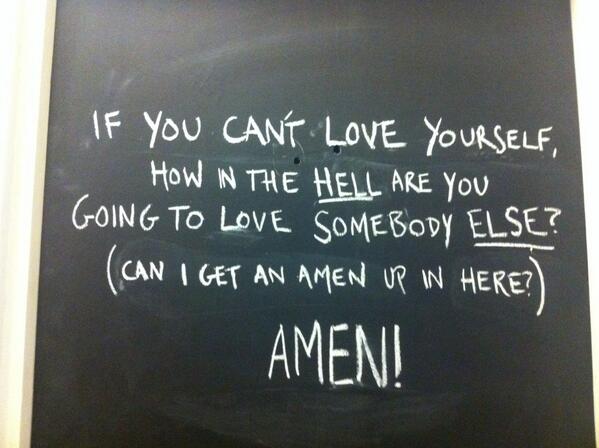 IF YOU CAN'T LOVE YOURSELF,
HOW IN THE HELL ARE YOU
GOING TO LOVE SOMEBODY ELSE?
(CAN I GET AN AMEN UP IN HERE?)
AMEN!